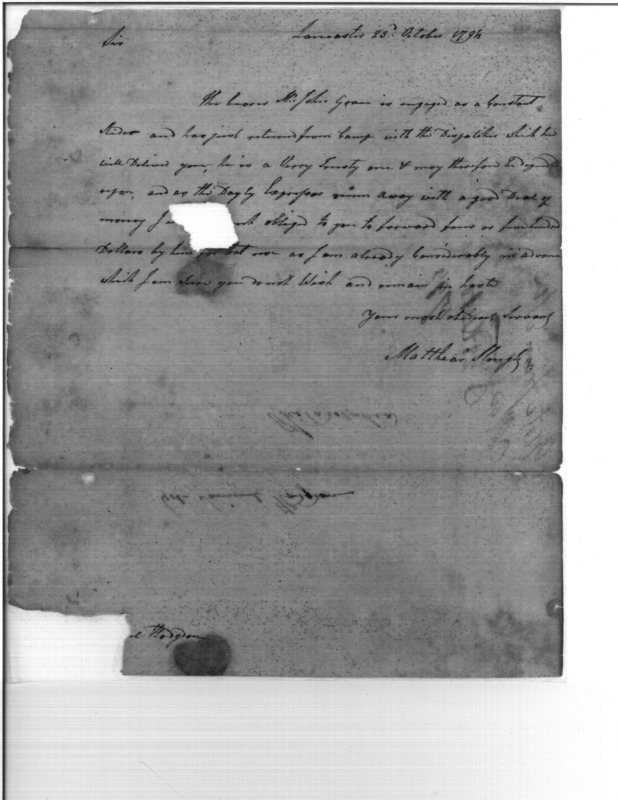 Sir Lancaster 23d. October 1794
The bearer Mr. John Grave is engaged as a Constant
Rider and has just returned from Camp with the Dispatches which he
will Deliver you, he is a Verry Trusty one & may therefore be depended
upon, and as the Dayly Expresses runn away with a good Deal of
money I obliged to you to forward four or five hundred
Dollars by him not one as I am already Considerably in advance
which I am sure you do not Wish and remain in haste
Your most obedient Servant
Matthias Slough
Philadelphia
Samuel Hodgdon
Hodgdon